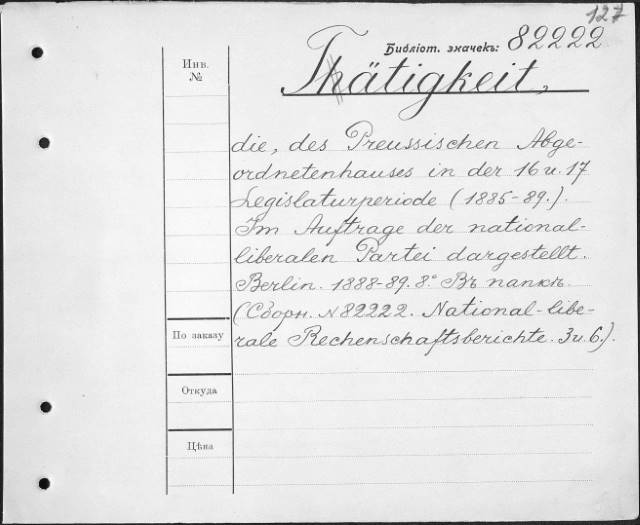 127
Библіот. значекъ: 82222
Инв.
№
Thätigkeit,
die, des Preussischen Abge-
ordnetenhauses in der 16 u. 17
Legislaturperiode (1885-89.).
Im Auftrage der national-
liberalen Partei dargestellt.
Berlin. 1888-89. 8° Въ папкѣ.
(Сборн. № 82222. National-libe-
По заказу
rale Rechenschaftsberichte. 3 u. 6.).
Откуда
Цѣна